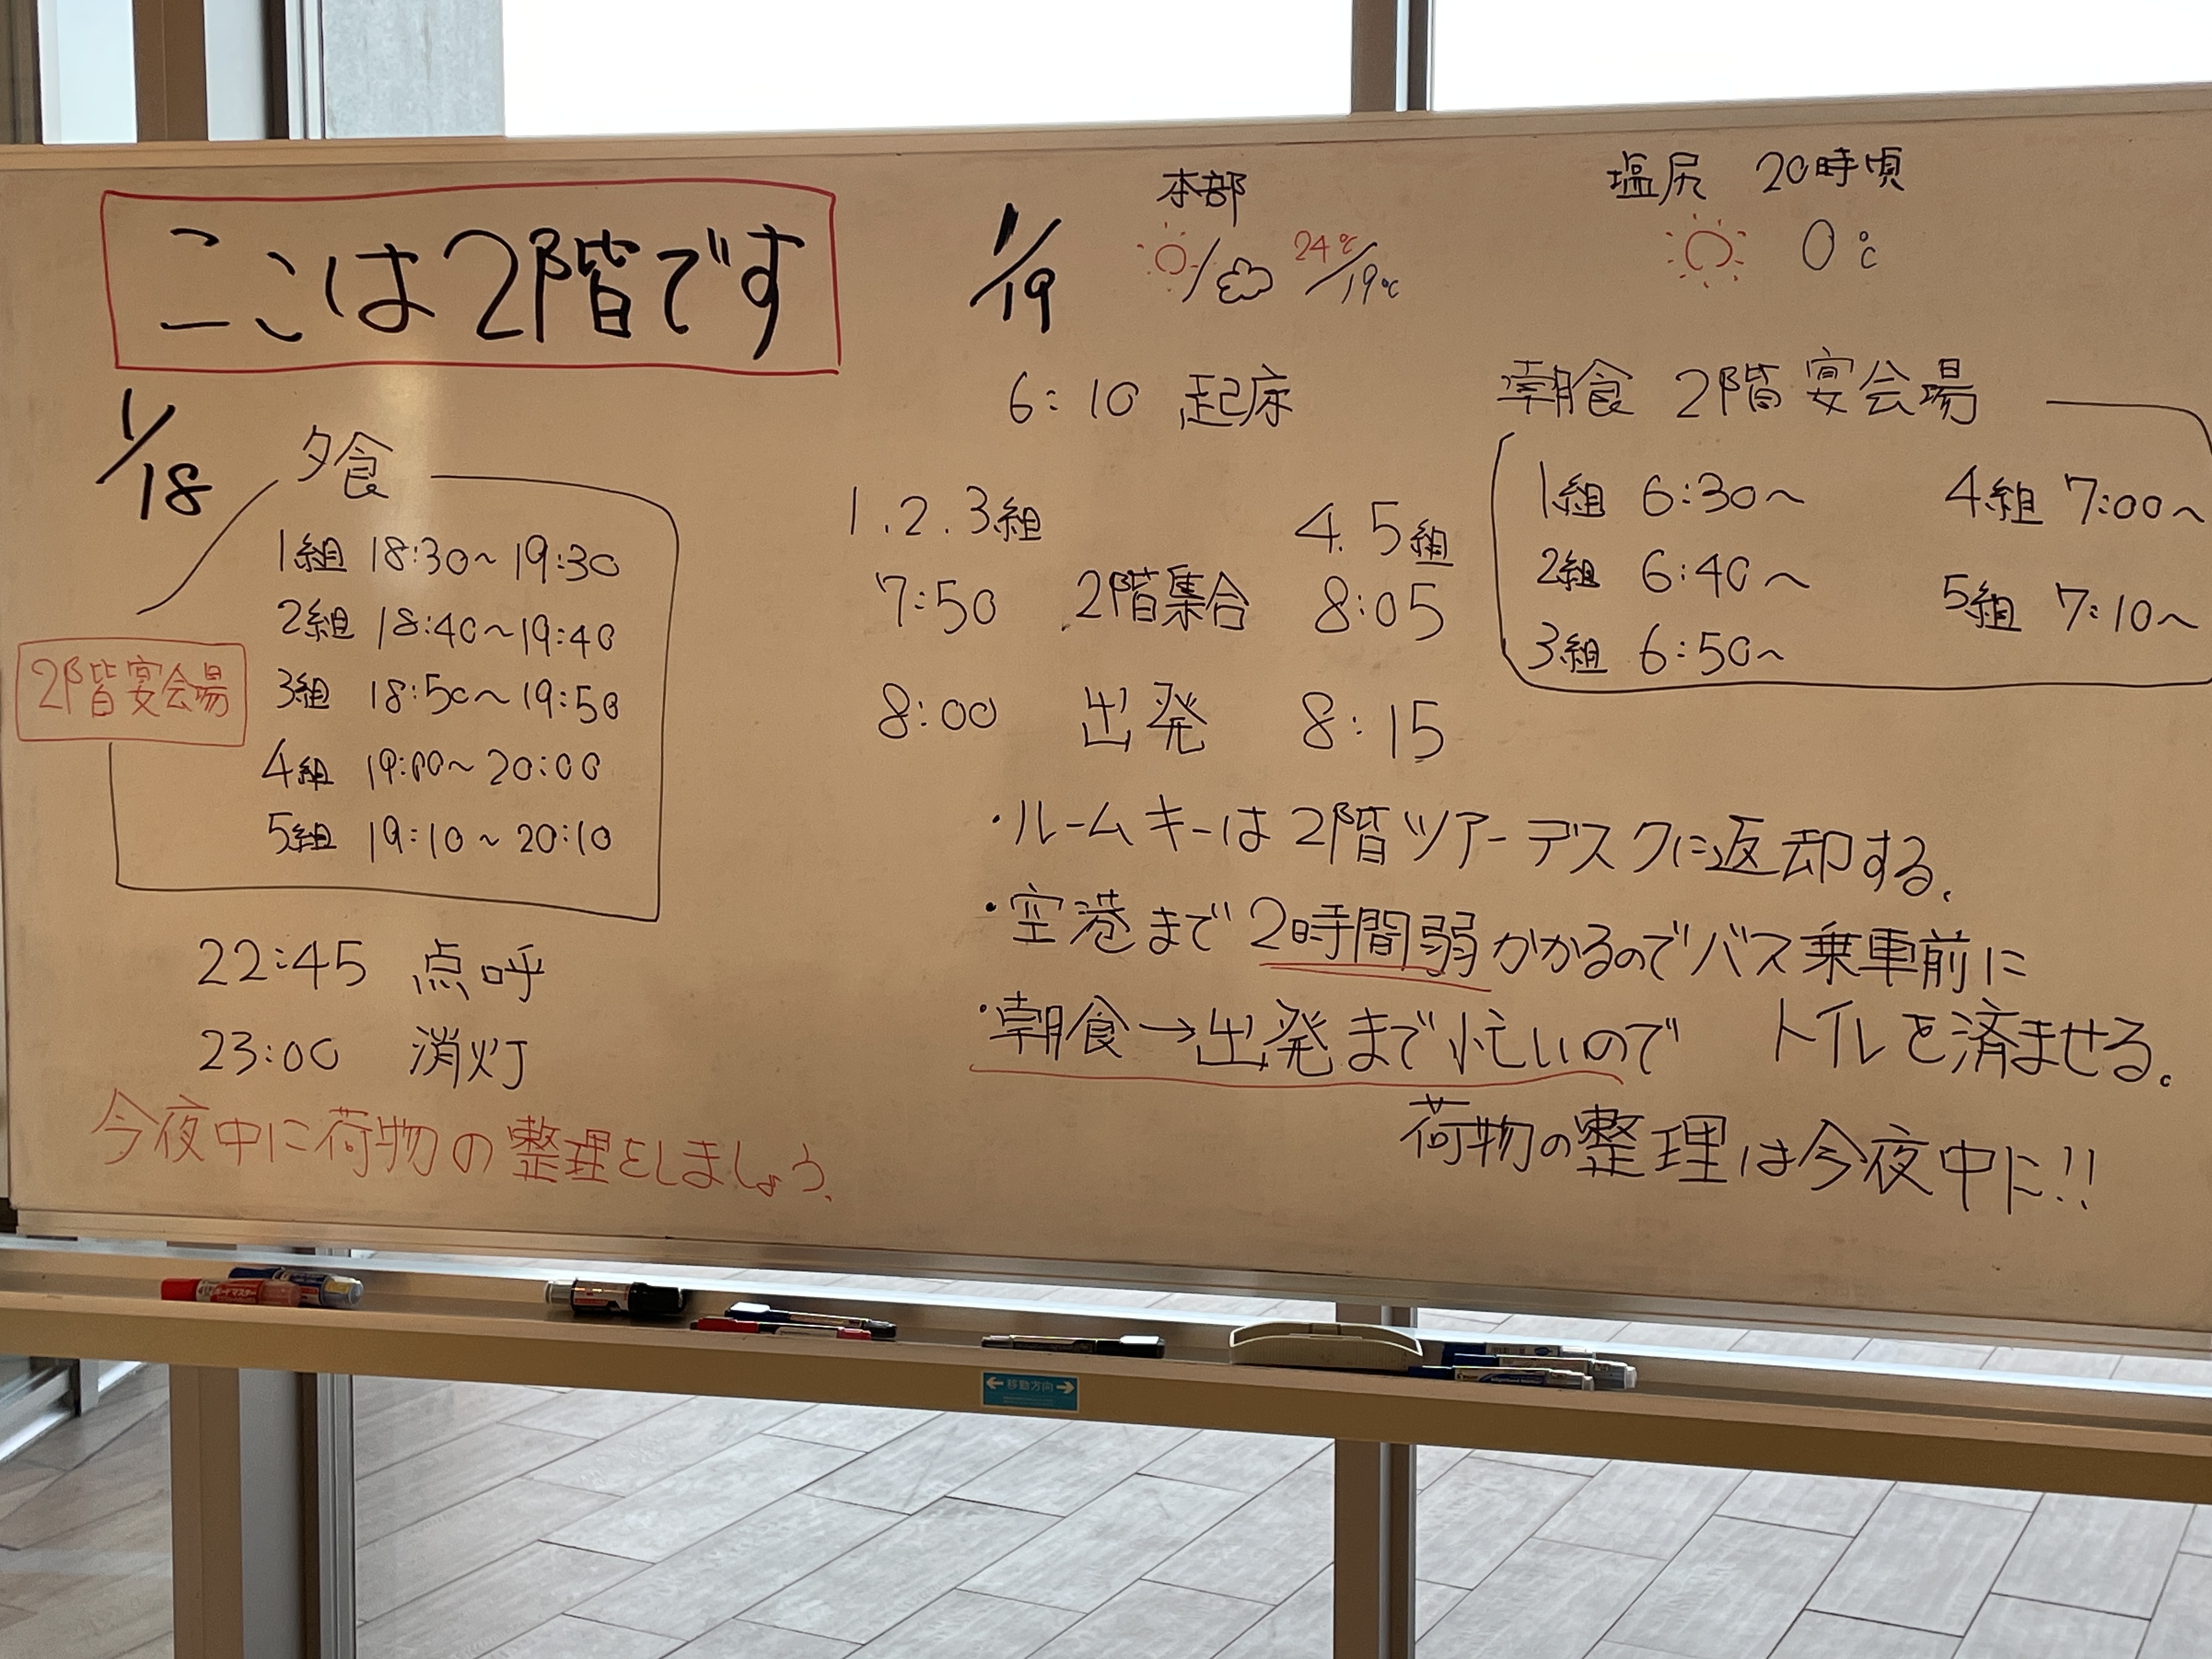 ここは2階です
1/18
夕食
2階宴会場
1組 18:30〜19:30
2組 18:40〜19:40
3組 18:50〜19:50
4組 19:00〜20:00
5組 19:10〜20:10
22:45 点呼
23:00 消灯
今夜中に荷物の整理をしましょう.
1/19
本部
24℃/19℃
塩尻 20時頃
0℃
6:10 起床
朝食 2階宴会場
1組 6:30〜
2組 6:40〜
3組 6:50〜
4組 7:00〜
5組 7:10〜
1.2.3組 4.5組
7:50 2階集合 8:05
8:00 出発 8:15
・ルームキーは2階ツアーデスクに返却する.
・空港まで2時間弱かかるのでバス乗車前に
トイレを済ませる。
・朝食→出発まで忙しいので
荷物の整理は今夜中に!!
←移動方向→